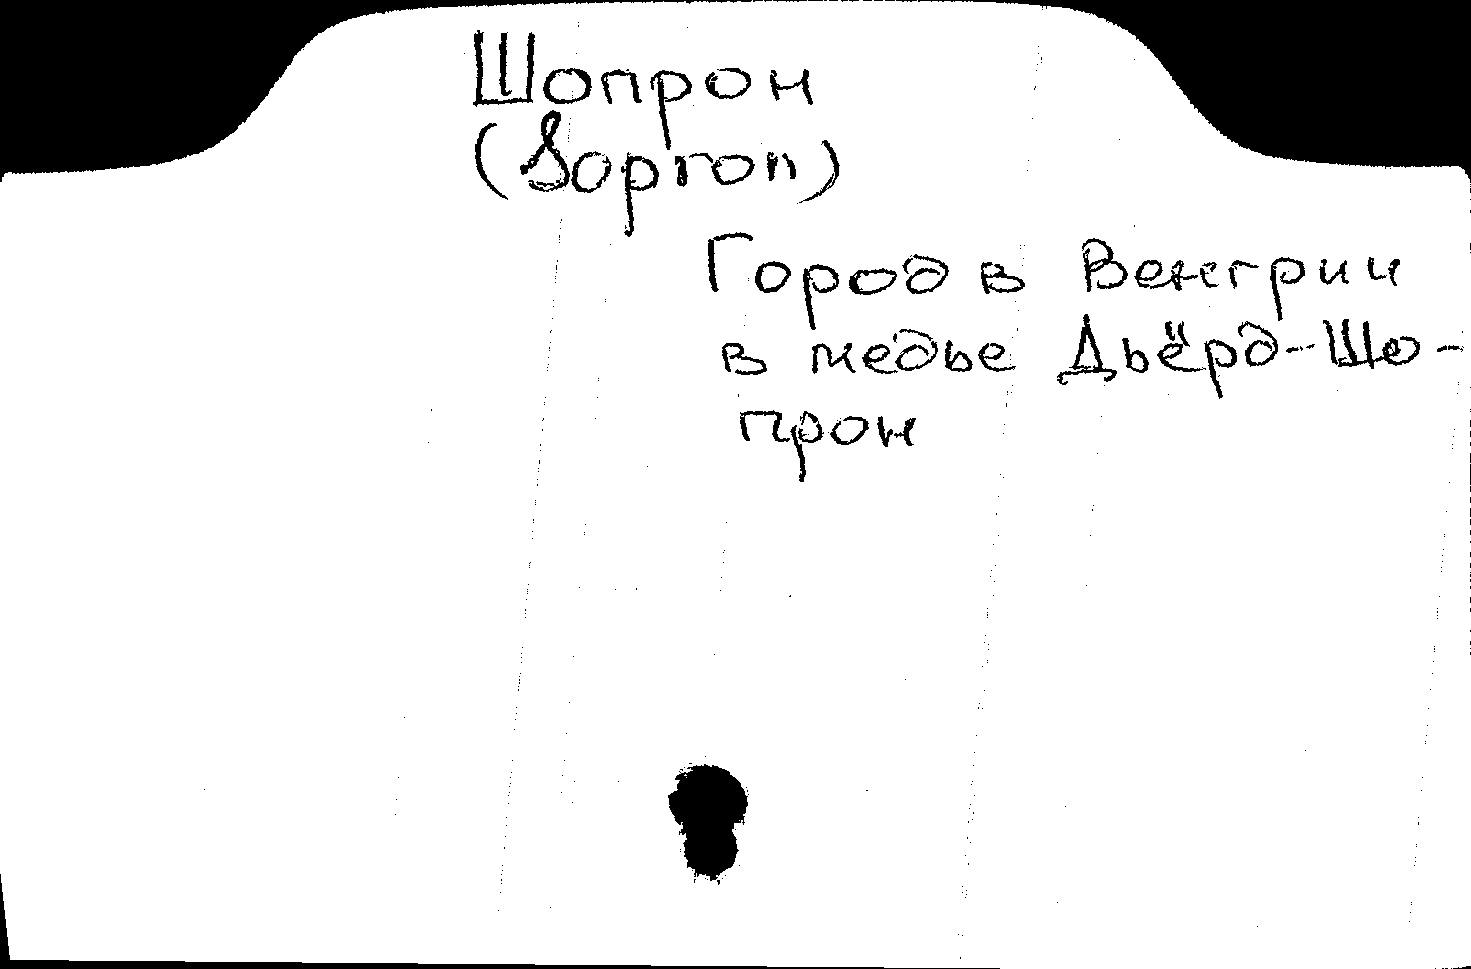 Шопрон
(Sopron)
Город в Венгрии
в медье Дьёрд-Шо-
прон